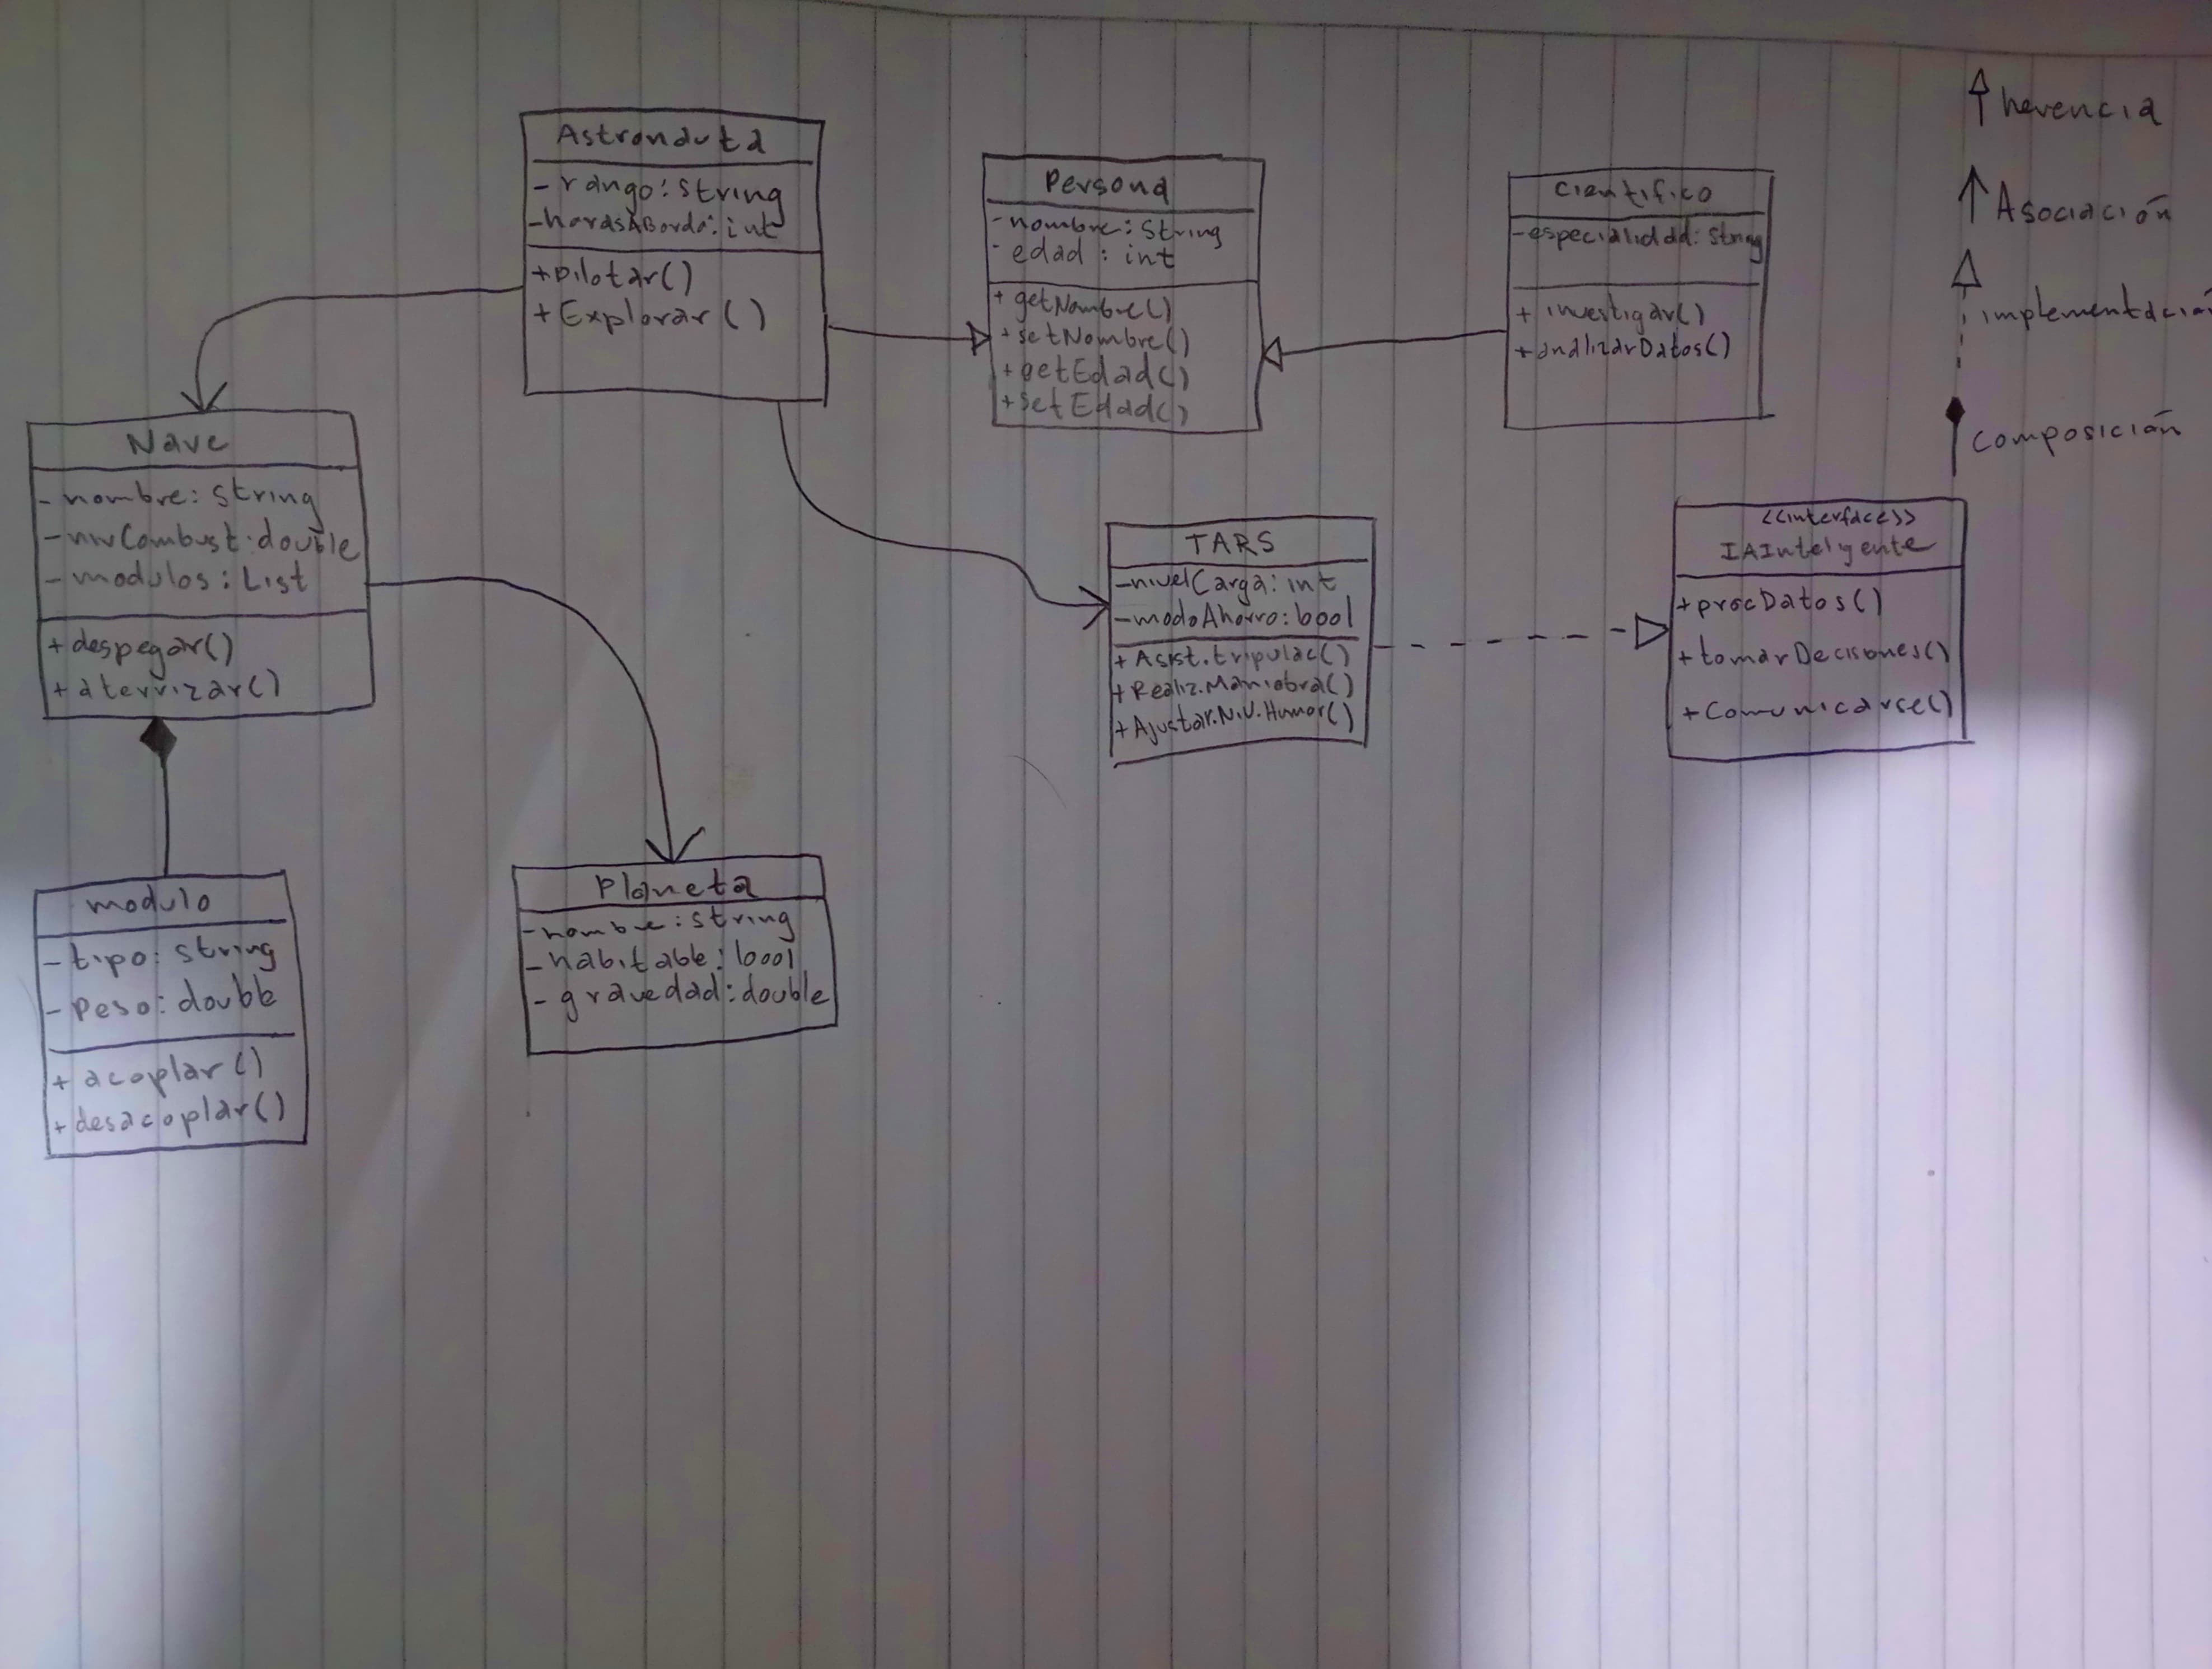 Astronauta
- rango: string
- horasABordo: int
+ pilotar()
+ Explorar()
Persona
- nombre: String
- edad : int
+ getNombre()
+ setNombre()
+ getEdad()
+ setEdad()
cientifico
- especialidad: string
+ investigar()
+ analizarDatos()
herencia
Asociación
implementación
composición
Nave
- nombre: string
- nivCombust: double
- modulos: List
+ despegar()
+ aterrizar()
TARS
- nivelCarga: int
- modoAhorro: bool
+ Asist.tripulac()
+ Realiz.Maniobra()
+ Ajustar.Niv.Humor()
<<interface>>
IAInteligente
+ procDatos()
+ tomarDecisiones()
+ Comunicarse()
modulo
- tipo: string
- Peso: double
+ acoplar()
+ desacoplar()
Planeta
- nombre: string
- habitable: bool
- gravedad: double